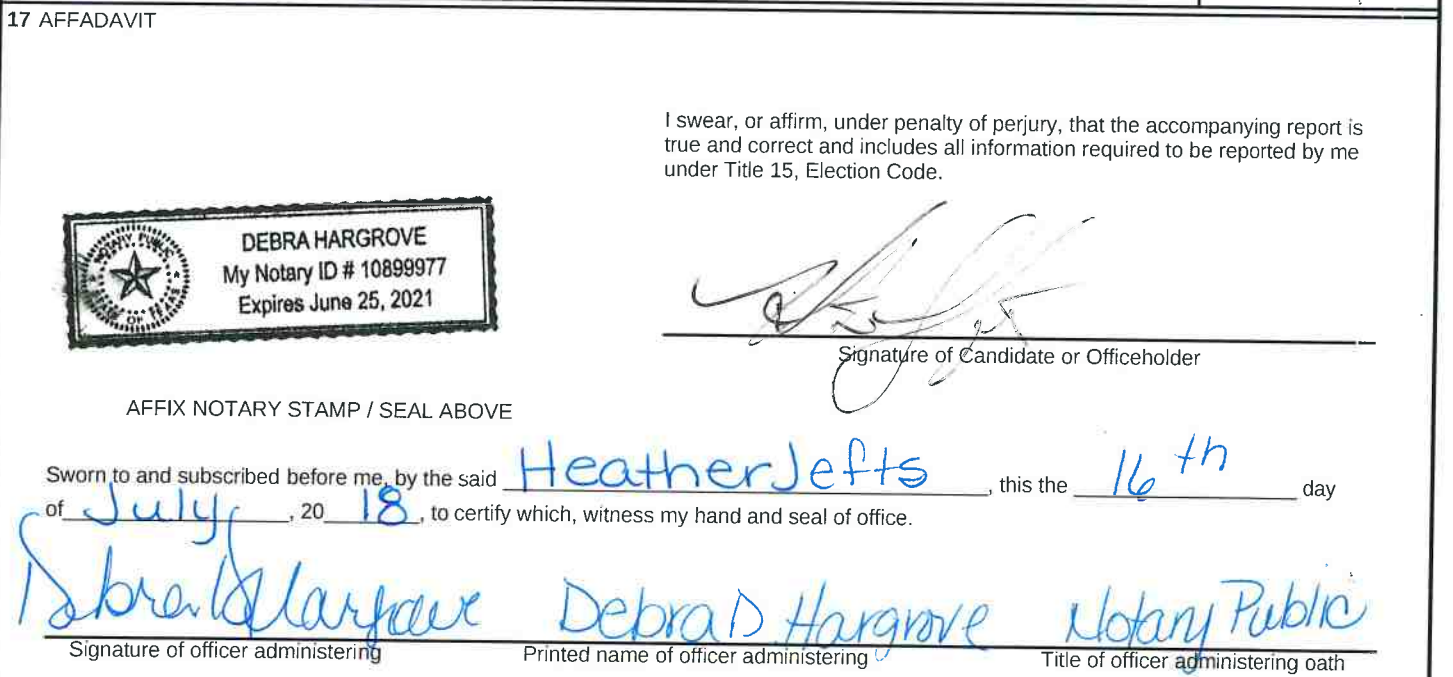 17 AFFADAVIT
I swear, or affirm, under penalty of perjury, that the accompanying report is
true and correct and includes all information required to be reported by me
under Title 15, Election Code.
NOTARY PUBLIC
STATE OF TEXAS
DEBRA HARGROVE
My Notary ID # 10899977
Expires June 25, 2021
Signature of Candidate or Officeholder
AFFIX NOTARY STAMP / SEAL ABOVE
Sworn to and subscribed before me, by the said Heather Jefts, this the 16th day
of July, 20 18, to certify which, witness my hand and seal of office.
Debra D Hargrove Debra D Hargrove Notary Public
Signature of officer administering Printed name of officer administering Title of officer administering oath